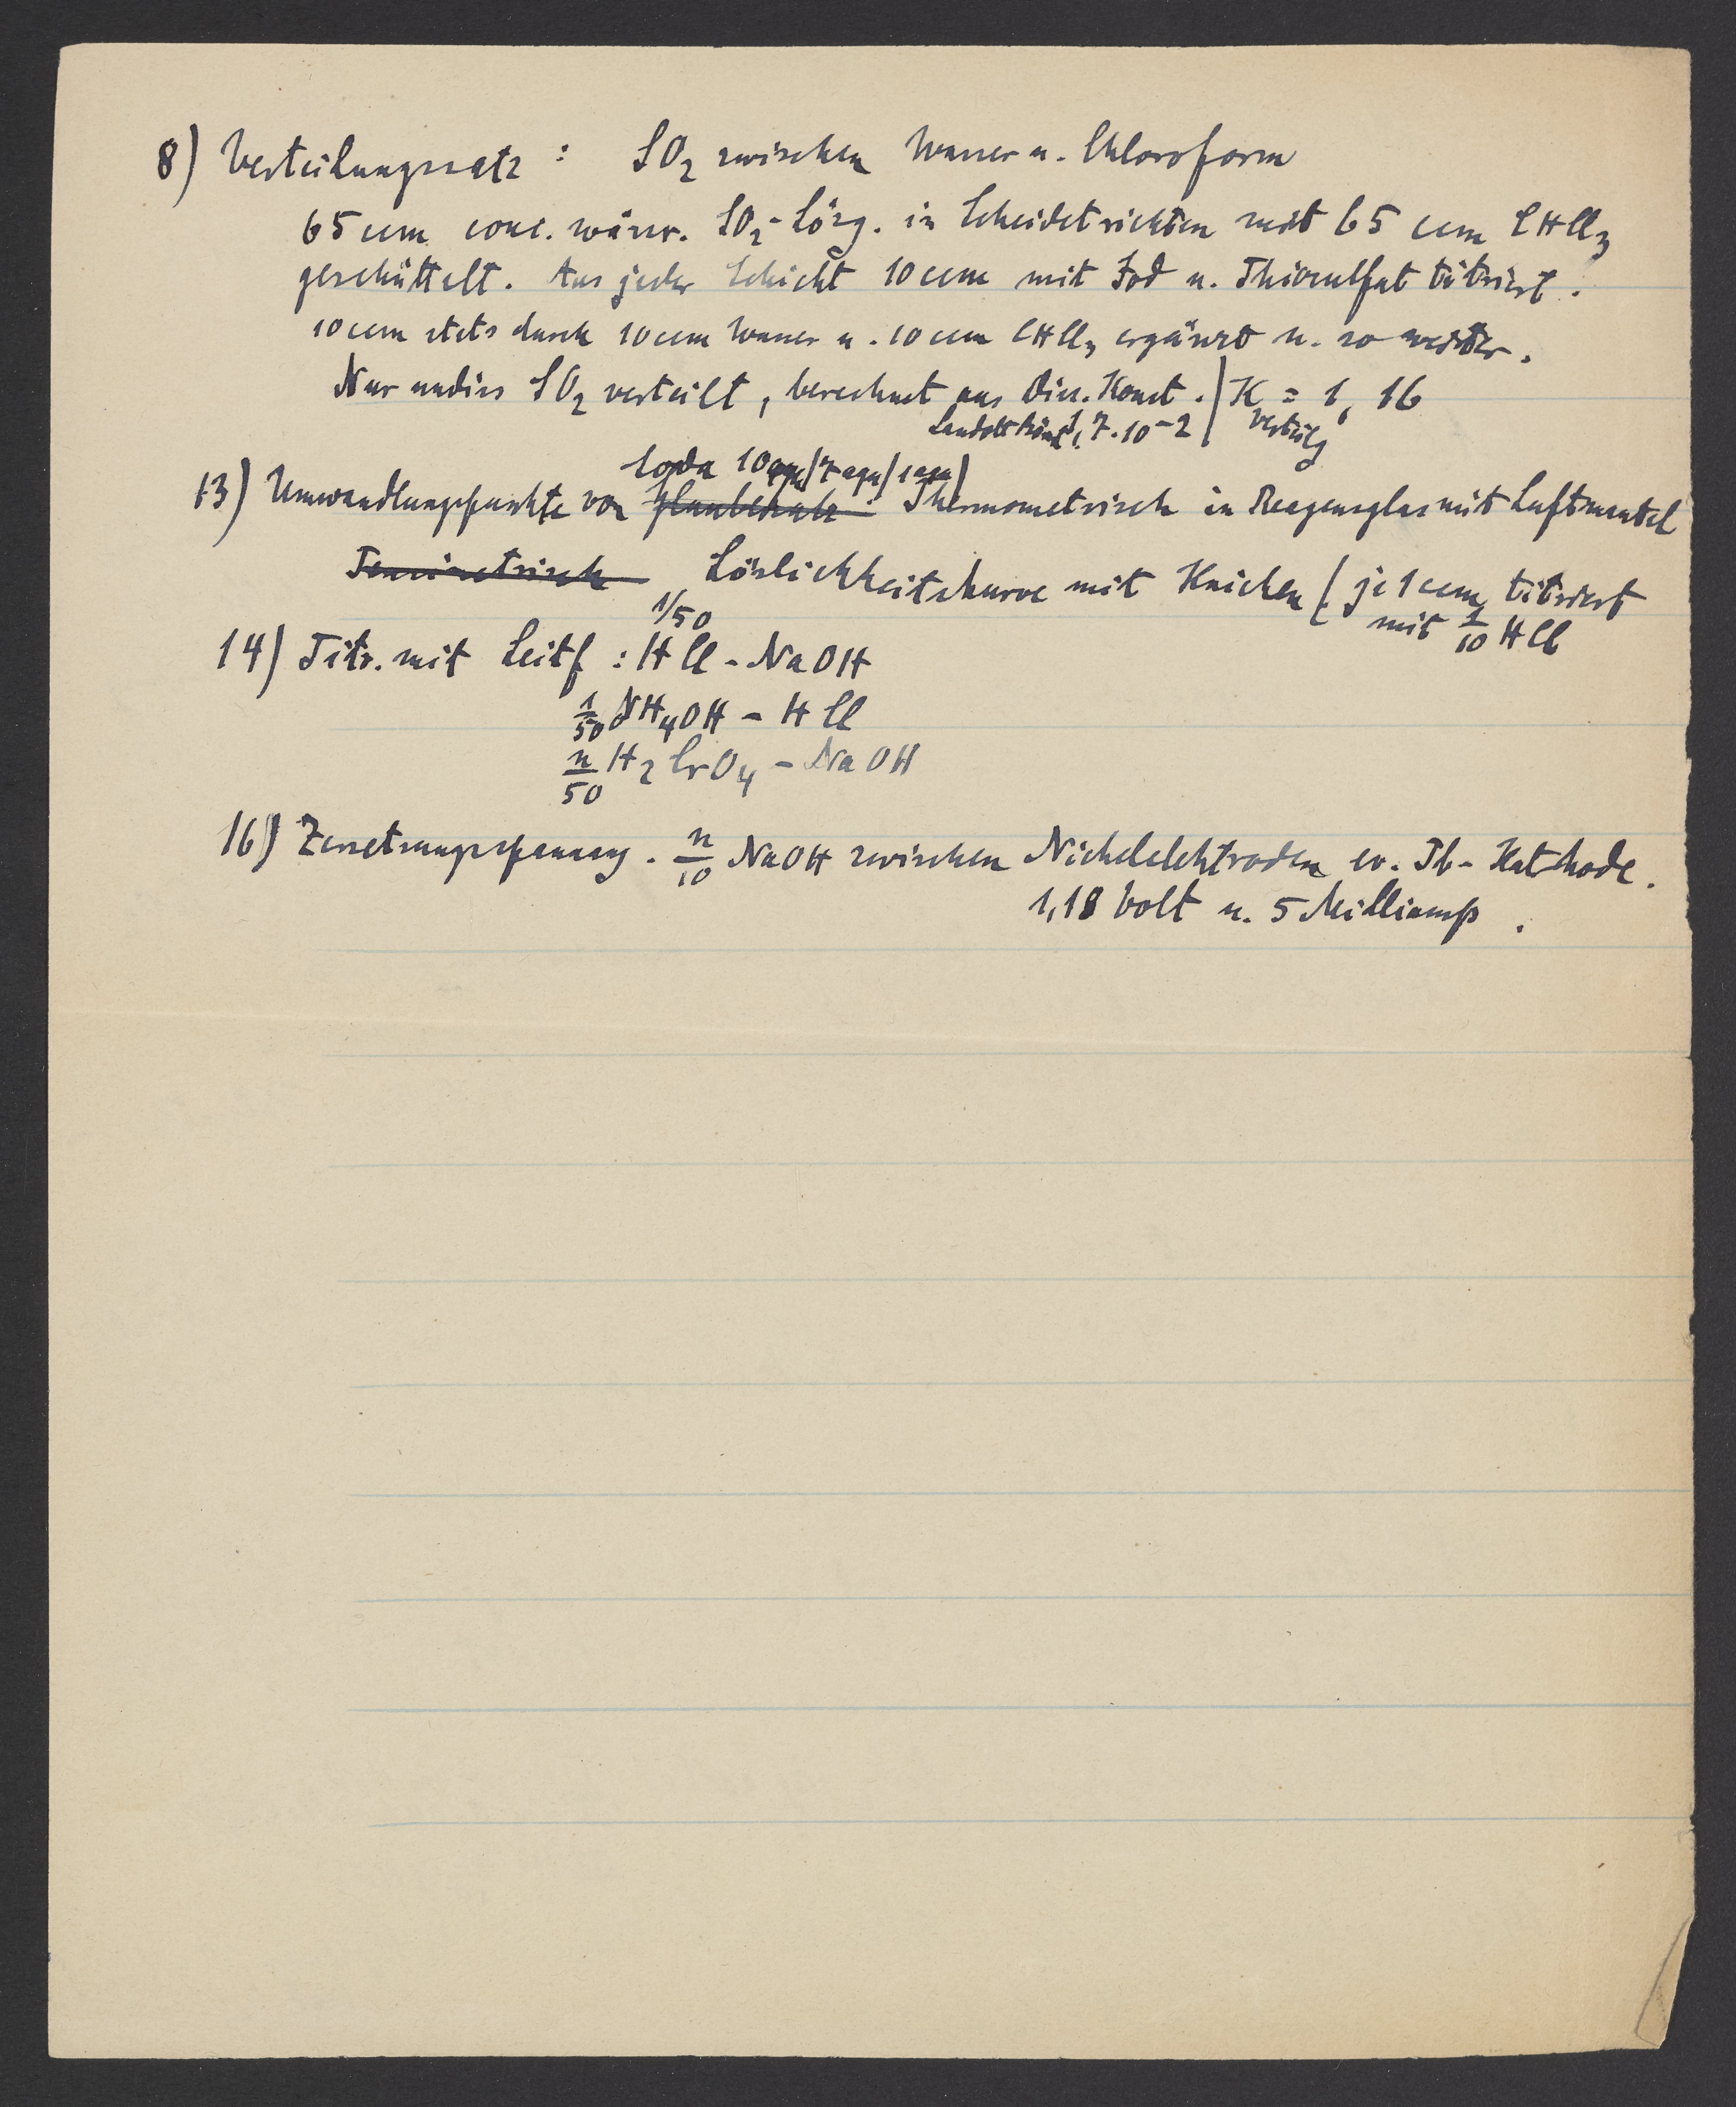 8) Verteilungssatz : SO2 zwischen Wasser u. Chloroform
65 ccm conc. wässr. SO2-Lösg. in Scheidetrichter mit 65 ccm CHCl3
geschüttelt. Aus jeder Schicht 10 ccm mit Jod u. Thiosulfat titriert.
10 ccm stets durch 10 ccm Wasser u. 10 ccm CHCl3 ergänzt u. so weiter.
Nur undiss SO2 verteilt, berechnet aus Diss. Konst. | K = 1,16
Landolt Börnst. 1,7·10-2 | Verteilg
Soda 10 aqu/7 aqu/1 aqu)
13) Umwandlungspunkte von Glaubersalz : Thermometrisch in Reagensglas mit Luftmantel
Tensimetrisch Löslichkeitskurve mit Knicken ( je 1 ccm titriert
mit 1/10 HCl
1/50
14) Titr. mit Leitf : HCl - NaOH
1/50 NH4OH - HCl
n/50 H2CrO4 - NaOH
16) Zersetzungsspannung. n/10 NaOH zwischen Nickelelektroden ev. Pb-Kathode.
1,18 Volt u. 5 Milliamp.